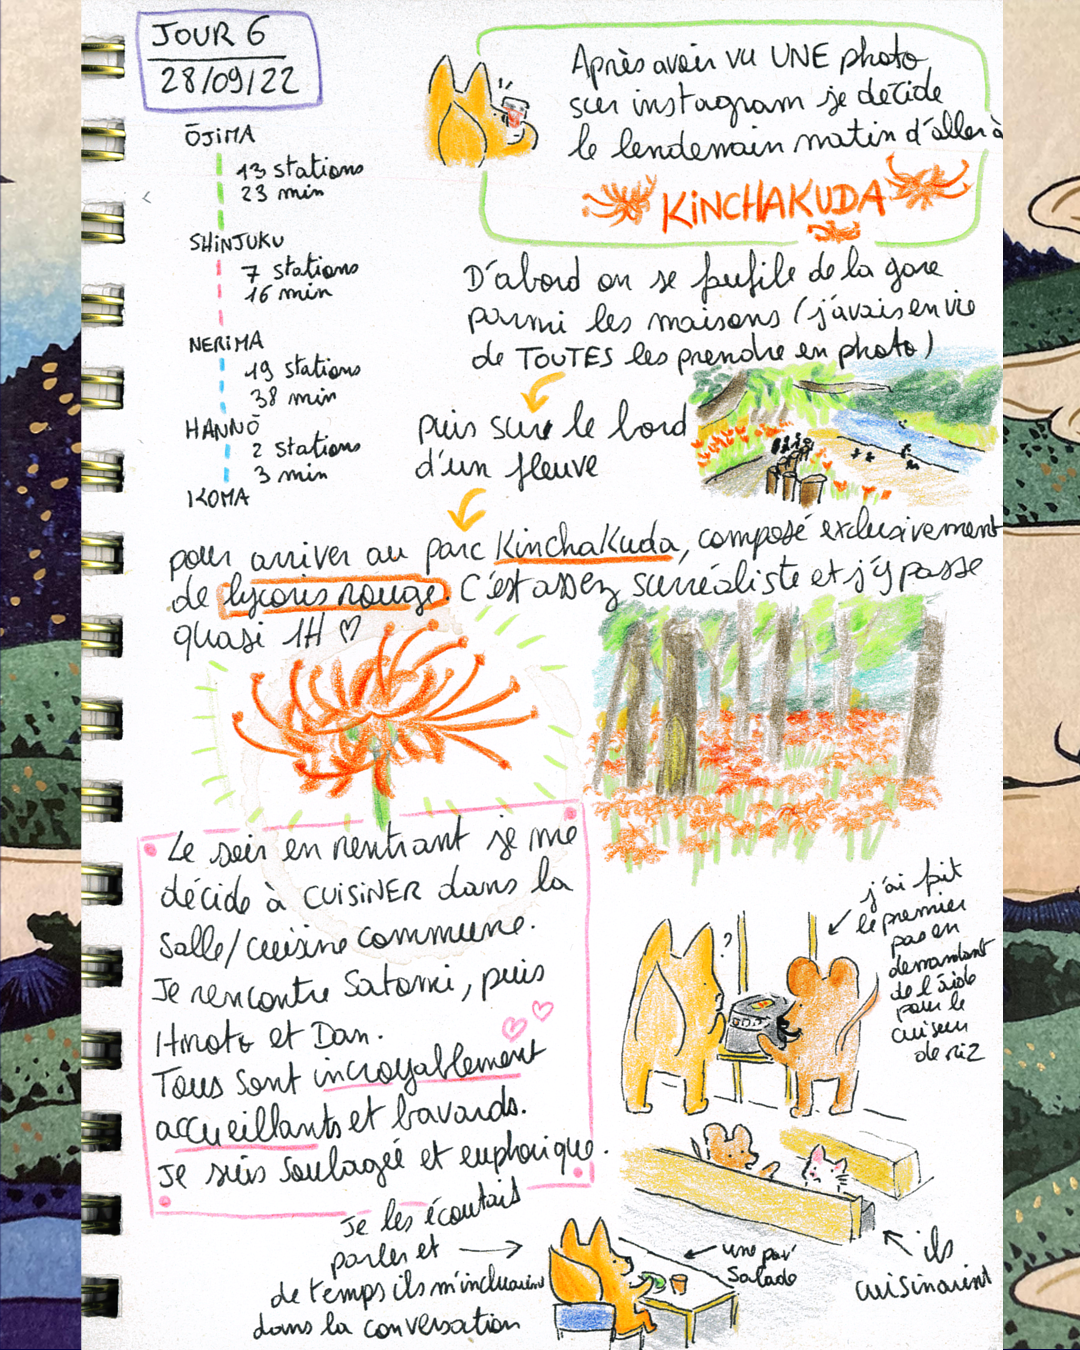 JOUR 6
28/09/22
ŌJIMA
13 stations
23 min
SHINJUKU
7 stations
16 min
NERIMA
19 stations
38 min
HANNŌ
2 stations
3 min
IKOMA
Après avoir vu UNE photo
sur instagram je décide
le lendemain matin d'aller à
KINCHAKUDA
D'abord on se faufile de la gare
parmi les maisons (j'avais envie
de TOUTES les prendre en photo)
puis sur le bord
d'un fleuve
pour arriver au parc KinchaKuda, composé exclusivement
de lycoris rouge. C'est assez surréaliste et j'y passe
quasi 1H ♡
Le soir en rentrant je me
décide à CUISINER dans la
salle/cuisine commune.
Je rencontre Satomi, puis
et Dan.
Tous sont incroyablement
accueillants et bavards.
Je suis soulagée et euphorique.
j'ai fait
le premier
pas en
demandant
de l'aide
pour le
cuiseur
de riz
ils
cuisinaient
Je les écoutait
parler et
de temps ils m'incluaient
dans la conversation
une pov'
salade